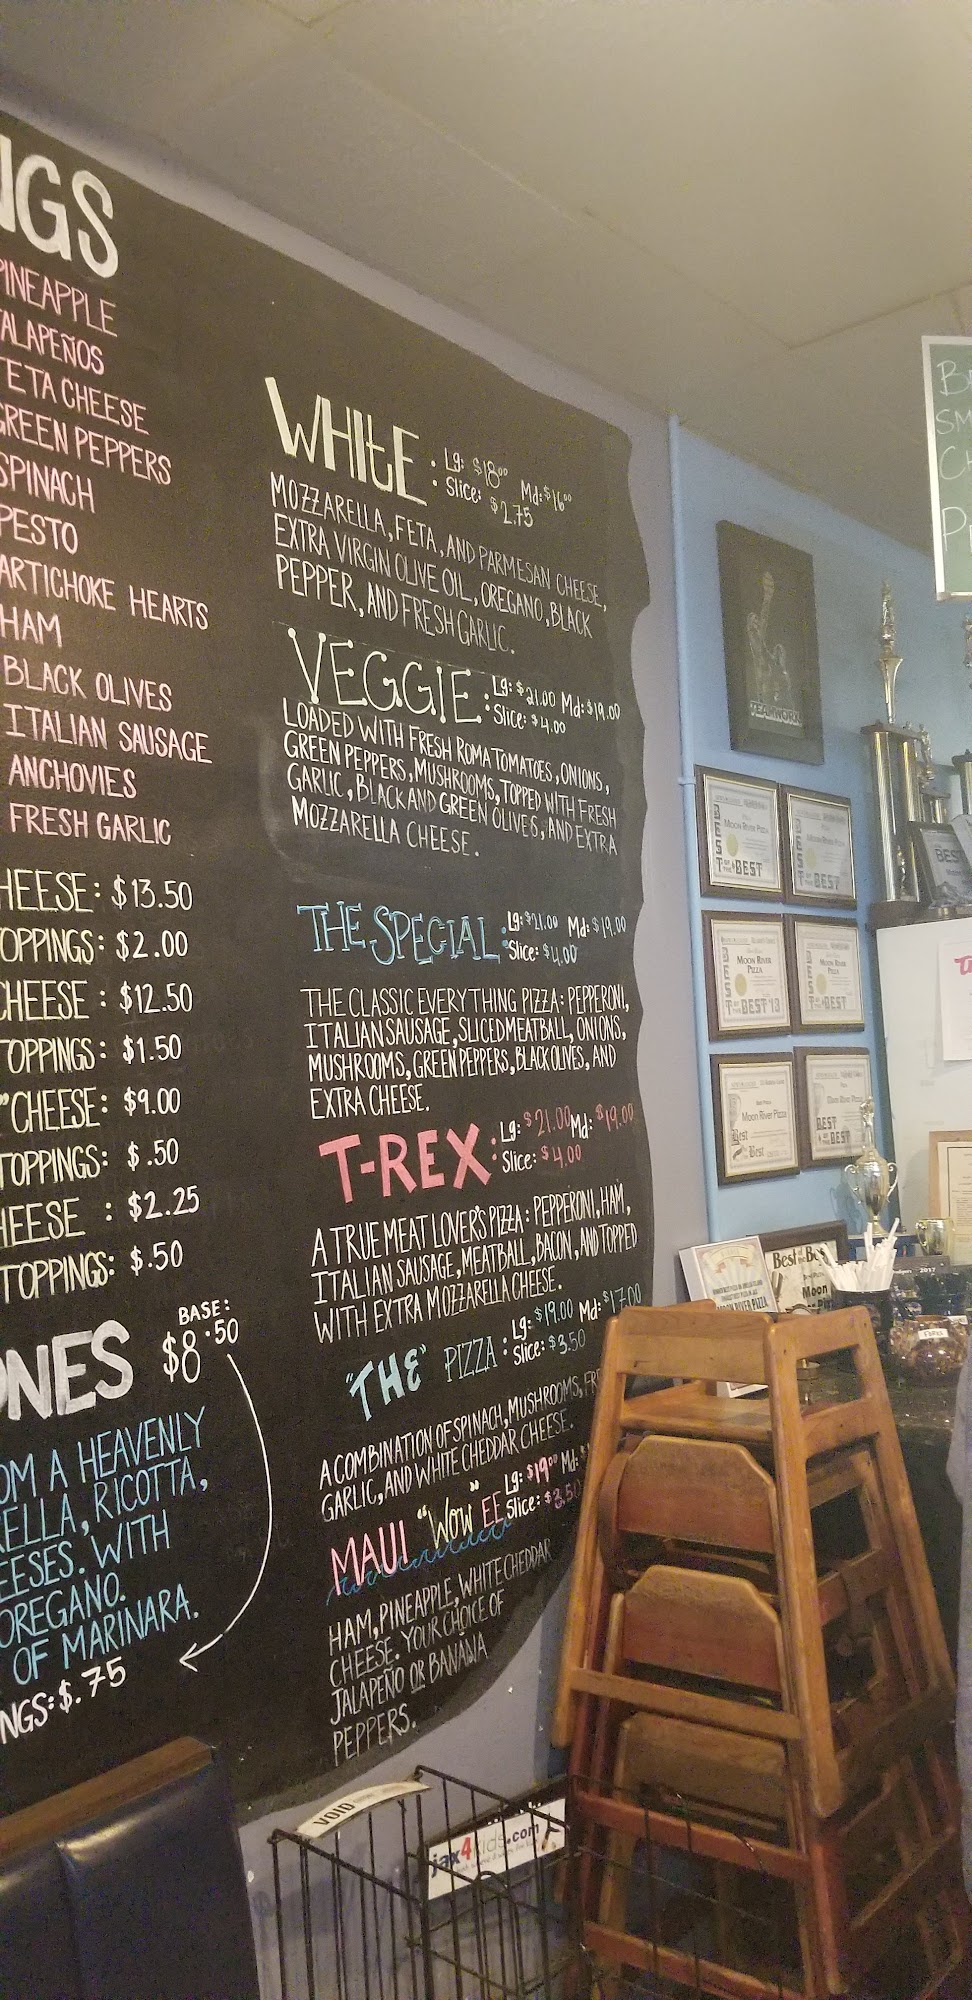 PINEAPPLE
JALAPEÑOS
FETA CHEESE
GREEN PEPPERS
SPINACH
PESTO
ARTICHOKE HEARTS
HAM
BLACK OLIVES
ITALIAN SAUSAGE
ANCHOVIES
FRESH GARLIC
CHEESE: $13.50
TOPPINGS: $2.00
CHEESE: $12.50
TOPPINGS: $1.50
"CHEESE: $9.00
TOPPINGS: $.50
CHEESE: $2.25
TOPPINGS: $.50
BASE:
$8.50
A HEAVENLY
RICOTTA,
WITH
OREGANO.
OF MARINARA.
$.75
WHITE: Lg: $18.00 Md: $16.00
Slice: $2.75
MOZZARELLA, FETA, AND PARMESAN CHEESE,
EXTRA VIRGIN OLIVE OIL, OREGANO, BLACK
PEPPER, AND FRESH GARLIC.
VEGGIE: Lg: $21.00 Md: $19.00
Slice: $4.00
LOADED WITH FRESH ROMA TOMATOES, ONIONS,
GREEN PEPPERS, MUSHROOMS, TOPPED WITH FRESH
GARLIC, BLACK AND GREEN OLIVES, AND EXTRA
MOZZARELLA CHEESE.
THE SPECIAL: Lg: $21.00 Md: $19.00
Slice: $4.00
THE CLASSIC EVERYTHING PIZZA: PEPPERONI,
ITALIAN SAUSAGE, SLICED MEATBALL, ONIONS,
MUSHROOMS, GREEN PEPPERS, BLACK OLIVES, AND
EXTRA CHEESE.
T-REX: Lg: $21.00 Md: $19.00
Slice: $4.00
A TRUE MEAT LOVER'S PIZZA: PEPPERONI, HAM,
ITALIAN SAUSAGE, MEATBALL, BACON, AND TOPPED
WITH EXTRA MOZZARELLA CHEESE.
"THE" PIZZA: Lg: $19.00 Md: $17.00
Slice: $3.50
A COMBINATION OF SPINACH, MUSHROOMS,
GARLIC, AND WHITE CHEDDAR CHEESE.
MAUI "WOW" EE Lg: $19.00 Md:
Slice: $3.50
HAM, PINEAPPLE, WHITE CHEDDAR
CHEESE. YOUR CHOICE OF
JALAPEÑO OR BANANA
PEPPERS.
TEAMWORK
MOON RIVER PIZZA
BEST OF THE BEST
MOON RIVER PIZZA
BEST OF THE BEST
MOON RIVER
PIZZA
BEST OF THE BEST '13
MOON RIVER
PIZZA
BEST OF THE BEST
Moon River Pizza
Best of the Best
Moon River Pizza
BEST OF THE BEST
BEST
Best of the Best
Moon
MOON RIVER PIZZA
2017
VOID
jax4kids.com